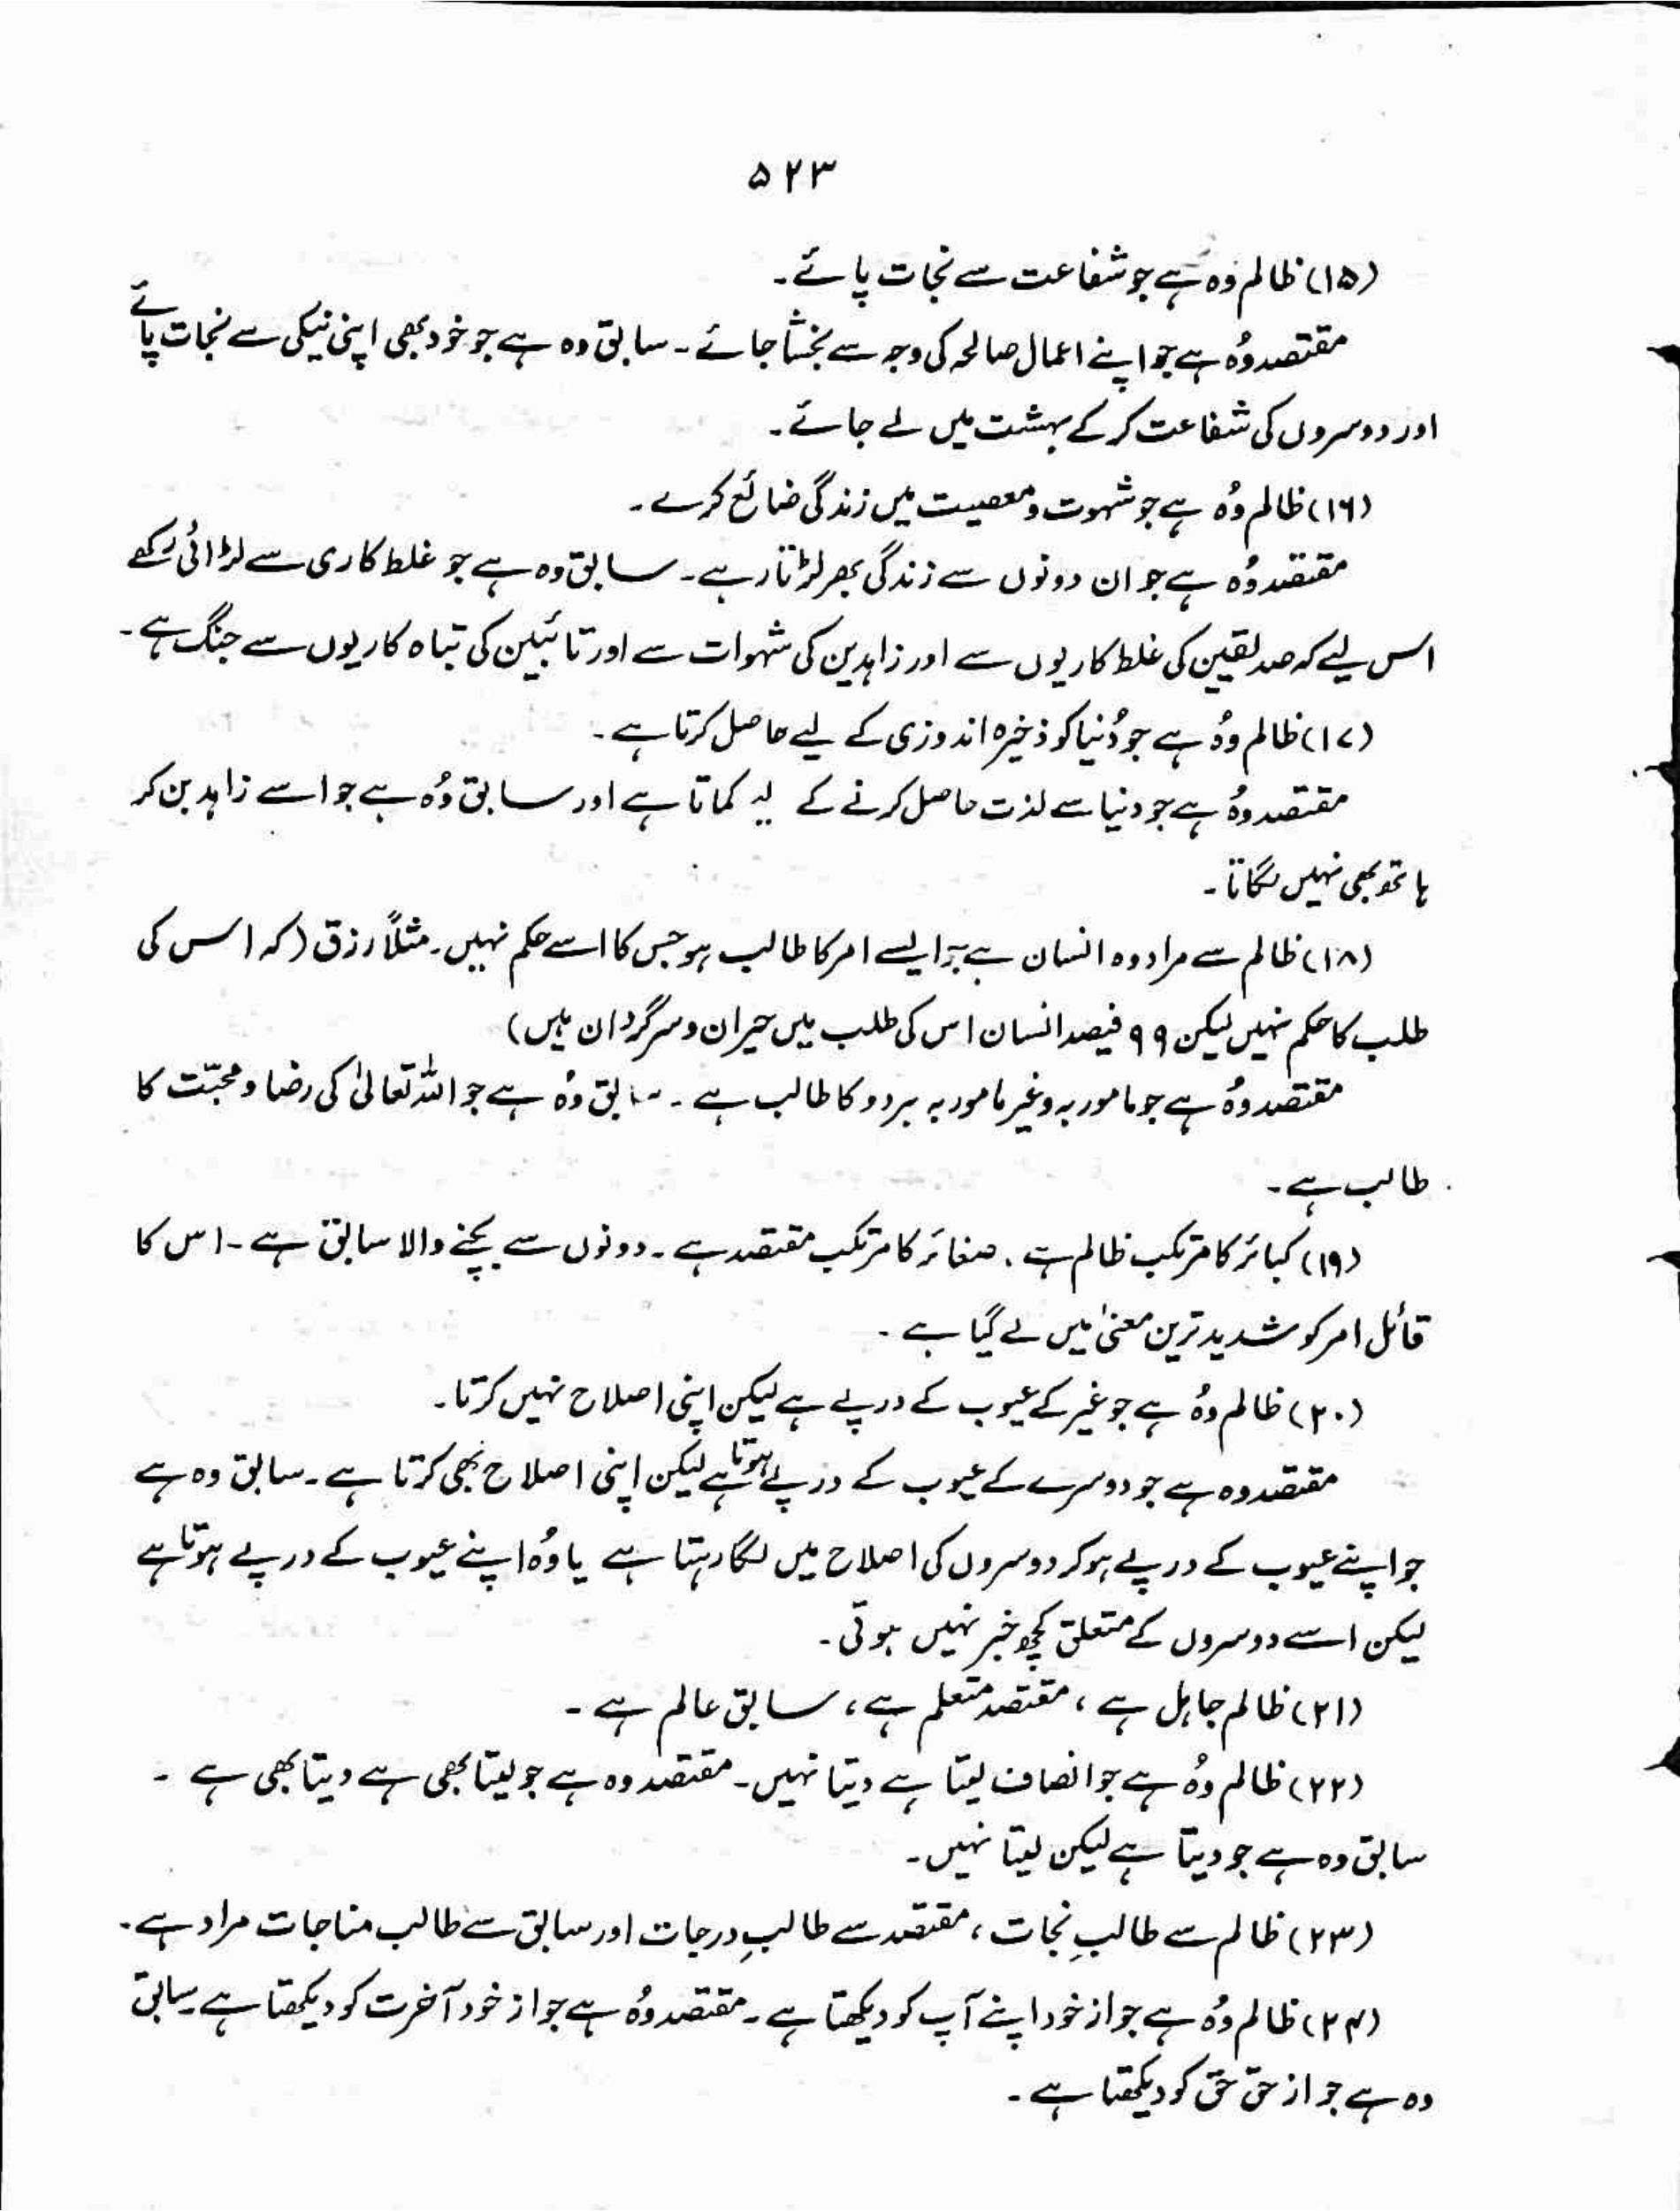 ۵۲۳
(۱۵) ظالم وہ ہے جو شفاعت سے نجات پائے۔
مقتصد وُہ ہے جو اپنے اعمال صالحہ کی وجہ سے بخشا جائے۔ سابق وہ ہے جو خود بھی اپنی نیکی سے نجات پائے
اور دوسروں کی شفاعت کر کے بہشت میں لے جائے۔
(۱۶) ظالم وُہ ہے جو شہوت و معصیت میں زندگی ضائع کرے۔
مقتصد وُہ ہے جو ان دونوں سے زندگی بھر لڑتا رہے۔ سابق وہ ہے جو غلط کاری سے لڑائی رکھے
اس لیے کہ صدیقین کی غلط کاریوں سے اور زاہدین کی شہوات سے اور تائبین کی تباہ کاریوں سے جنگ ہے۔
(۱۷) ظالم وُہ ہے جو دُنیا کو ذخیرہ اندوزی کے لیے حاصل کرتا ہے۔
مقتصد وُہ ہے جو دنیا سے لذت حاصل کرنے کے لیے کماتا ہے اور سابق وُہ ہے جو اسے زاہد بن کر
ہاتھ بھی نہیں لگاتا۔
(۱۸) ظالم سے مراد وہ انسان ہے جو ایسے امر کا طالب ہو جس کا اسے حکم نہیں۔ مثلاً رزق (کہ اس کی
طلب کا حکم نہیں لیکن ۹۹ فیصد انسان اس کی طلب میں حیران و سرگردان ہیں)
مقتصد وُہ ہے جو مامور بہ و غیر مامور بہ ہر دو کا طالب ہے۔ سابق وُہ ہے جو اللہ تعالیٰ کی رضا و محبّت کا
طالب ہے۔
(۱۹) کبائر کا مرتکب ظالم ہے۔ صغائر کا مرتکب مقتصد ہے۔ دونوں سے بچنے والا سابق ہے۔ اس کا
قائل امر کو شدید ترین معنیٰ میں لے گیا ہے۔
(۲۰) ظالم وُہ ہے جو غیر کے عیوب کے درپے ہے لیکن اپنی اصلاح نہیں کرتا۔
مقتصد وہ ہے جو دوسرے کے عیوب کے درپے ہوتا ہے لیکن اپنی اصلاح بھی کرتا ہے۔ سابق وہ ہے
جو اپنے عیوب کے درپے ہو کر دوسروں کی اصلاح میں لگا رہتا ہے یا وُہ اپنے عیوب کے درپے ہوتا ہے
لیکن اسے دوسروں کے متعلق کچھ خبر نہیں ہوتی۔
(۲۱) ظالم جاہل ہے، مقتصد متعلم ہے، سابق عالم ہے۔
(۲۲) ظالم وُہ ہے جو انصاف لیتا ہے دیتا نہیں۔ مقتصد وہ ہے جو لیتا بھی ہے دیتا بھی ہے۔
سابق وہ ہے جو دیتا ہے لیکن لیتا نہیں۔
(۲۳) ظالم سے طالبِ نجات، مقتصد سے طالبِ درجات اور سابق سے طالب مناجات مراد ہے۔
(۲۴) ظالم وُہ ہے جو از خود اپنے آپ کو دیکھتا ہے۔ مقتصد وُہ ہے جو از خود آخرت کو دیکھتا ہے۔ سابق
وہ ہے جو از حق حق کو دیکھتا ہے۔